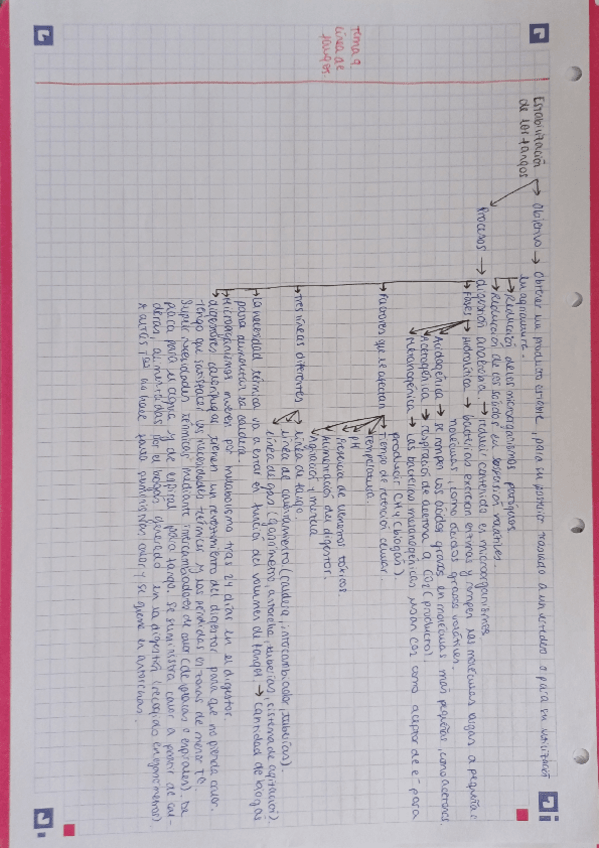 Tema 9
línea de
fangos.
Estabilización
de los fangos
Objetivo → Obtener un producto estable, para su posterior traslado a un vertedero o para su utilización
en agricultura.
→ Reducción de los microorganismos patógenos.
→ Reducción de los sólidos en suspensión volátiles.
Procesos → digestión anaerobia. → reducir contenido en microorganismos.
→ Fases → Hidrolítica → bacterias excretan enzimas y rompen las moléculas largas a pequeñas
moléculas, como ácidos grasos volátiles.
Acidogénica → se rompen los ácidos grasos en moléculas más pequeñas, como acetonas.
Acetogénica → respiración de acetona a CO2 (productos).
Metanogénica → las bacterias metanogénicas usan CO2 como aceptor de e- para
producir CH4 (biogás).
→ Factores que le afectan → Tiempo de retención celular.
Temperatura.
pH
Presencia de venenos tóxicos.
Alimentación del digestor.
Agitación y mezcla
→ Tres líneas diferentes → línea de fango.
línea de calentamiento (caldera, intercambiador, tuberías).
línea de gas (gasómetro, antorcha, tuberías, sistema de agitación).
→ la necesidad térmica va a estar en función del volumen de fango → cantidad de biogás
para alimentar la caldera.
→ Microorganismos mueren por metabolismo tras 24 días en el digestor.
→ digestores tienen un revestimiento del digestor para que no pierda calor.
Tengo que satisfacer las necesidades térmicas y las pérdidas en zonas de menor Tª. Se
suple necesidades térmicas mediante intercambiadores de calor (de placas o espirales). De
placa para el agua y de espiral para fango. Se suministra calor a partir de cal-
deras, alimentadas por el biogás generado en la digestión (recogido en gasómetros).
A altas Tªs no hace falta suministrar calor y se quema en antorchas.